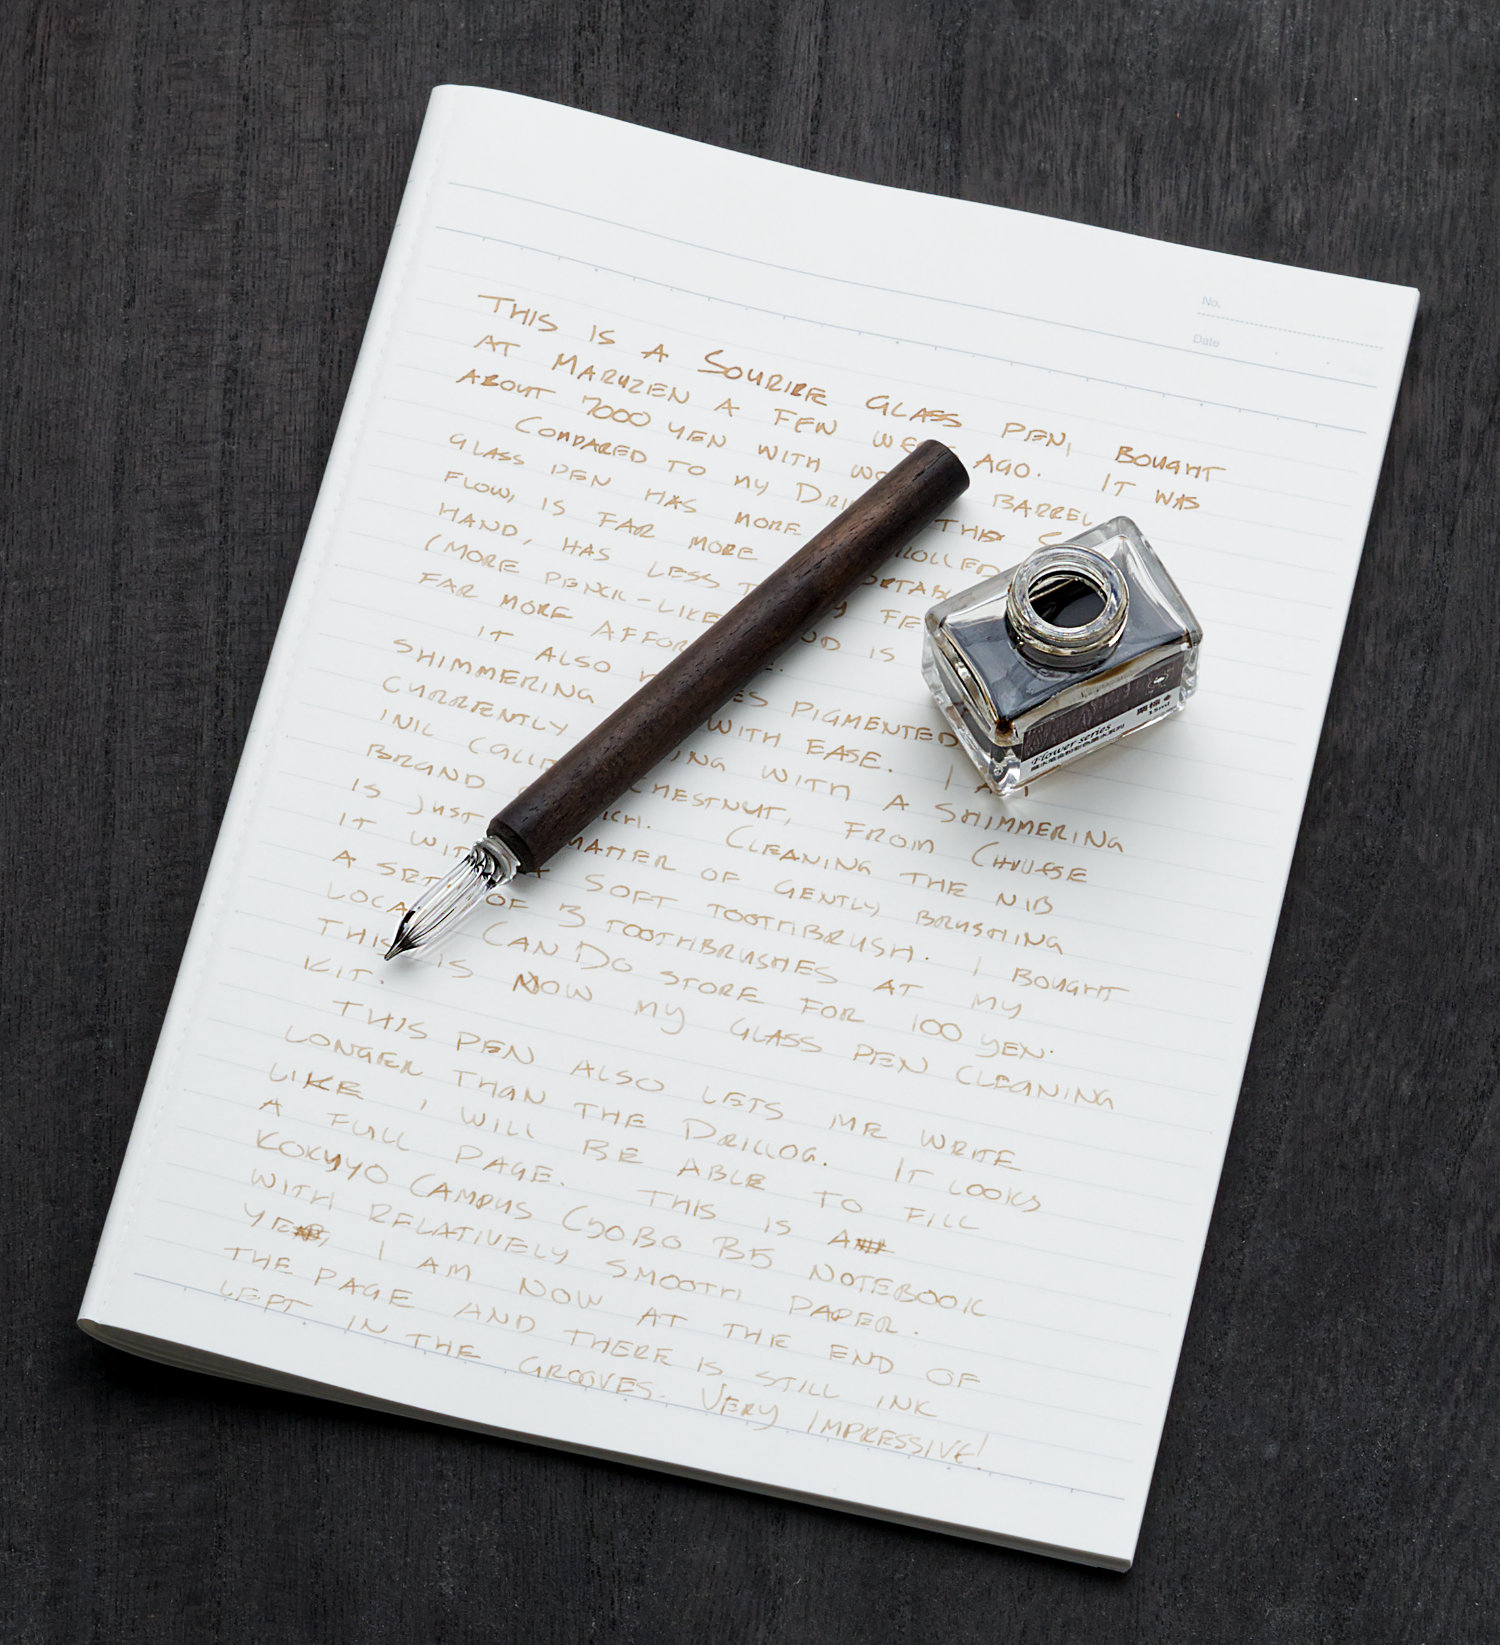 No.
Date
THIS IS A SOURIRE GLASS PEN, BOUGHT
AT MARUZEN A FEW AGO. IT WAS
ABOUT 7000 YEN WITH BARREL
COMPARED TO MY THIS
GLASS PEN HAS MORE
FLOW, IS FAR MORE
HAND, HAS LESS
(MORE PENCIL-LIKE IS
FAR MORE
IT ALSO PIGMENTED
SHIMMERING WITH EASE. I AM
CURRENTLY WITH A SHIMMERING
INK CHESTNUT, FROM
BRAND CLEANING THE NIB
IS JUST MATTER OF GENTLY BRUSHING
IT SOFT TOOTHBRUSH. I BOUGHT
A SET OF 3 TOOTHBRUSHES AT MY
CAN DO STORE FOR 100 YEN.
THIS IS NOW MY GLASS PEN CLEANING
KIT.
THIS PEN ALSO LETS ME WRITE
LONGER THAN THE DRILLOG. IT LOOKS
LIKE I WILL BE ABLE TO FILL
A FULL PAGE. THIS IS A
KOKUYO CAMPUS CYOBO B5 NOTEBOOK
WITH RELATIVELY SMOOTH PAPER.
I AM NOW AT THE END OF
THE PAGE AND THERE IS STILL INK
LEFT IN THE GROOVES. VERY IMPRESSIVE!
Flower series
15ml